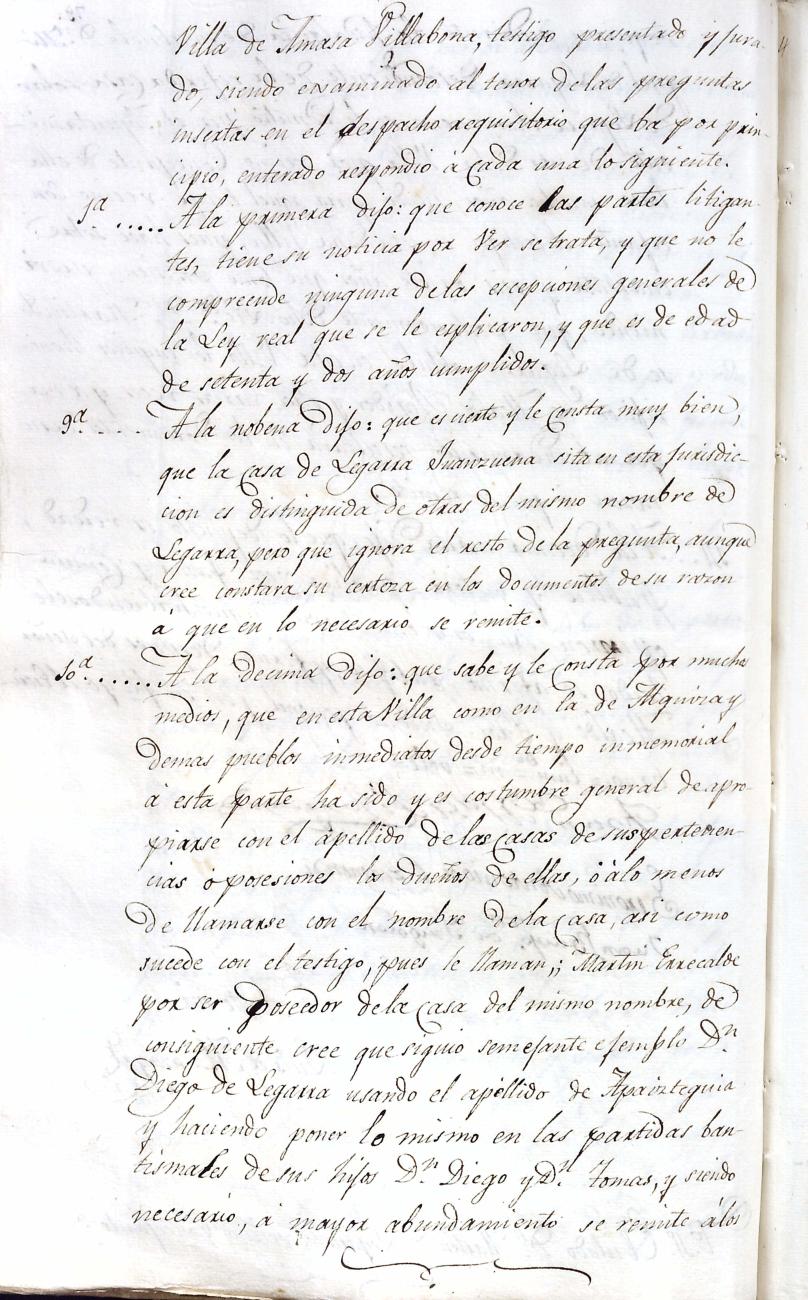 Villa de Amasa Villabona, testigo presentado y jura-
do, siendo examinado al tenor de las preguntas
insertas en el despacho requisitorio que ba por prin-
cipio, enterado respondio á cada una lo siguiente.
1ª ..... A la primera dijo: que conoce las partes litigan-
tes, tiene su noticia por Ver se trata, y que no le
comprende ninguna de las escepciones generales de
la Ley real que se le esplicaron, y que es de edad
de setenta y dos años cumplidos.
9ª .... A la nobena dijo: que es cierto y le consta muy bien,
que la casa de Legarra Juanzuena sita en esta Jurisdic-
cion es distinguida de otras del mismo nombre de
Legarra, pero que ignora el resto de la pregunta, aunque
cree constara su certeza en los documentos de su razon
á que en lo necesario se remite.
10ª ...... A la decima dijo: que sabe y le consta por muchos
medios, que en esta Villa como en la de Alquiza y
demas pueblos inmediatos desde tiempo inmemorial
á esta parte ha sido y es costumbre general de apro-
piarse con el apellido de las casas de sus pertenen-
cias o posesiones los dueños de ellas, ó á lo menos
de llamarse con el nombre de la casa, asi como
sucede con el testigo, pues le llaman, Martin Errecalde
por ser poseedor de la casa del mismo nombre, de
consiguiente cree que siguio semejante ejemplo Dn
Diego de Legarra usando el apellido de Apaizteguia
y haciendo poner lo mismo en las partidas bau-
tismales de sus hijos Dn Diego y Dn Tomas, y siendo
necesario, á mayor abundamiento se remite á los